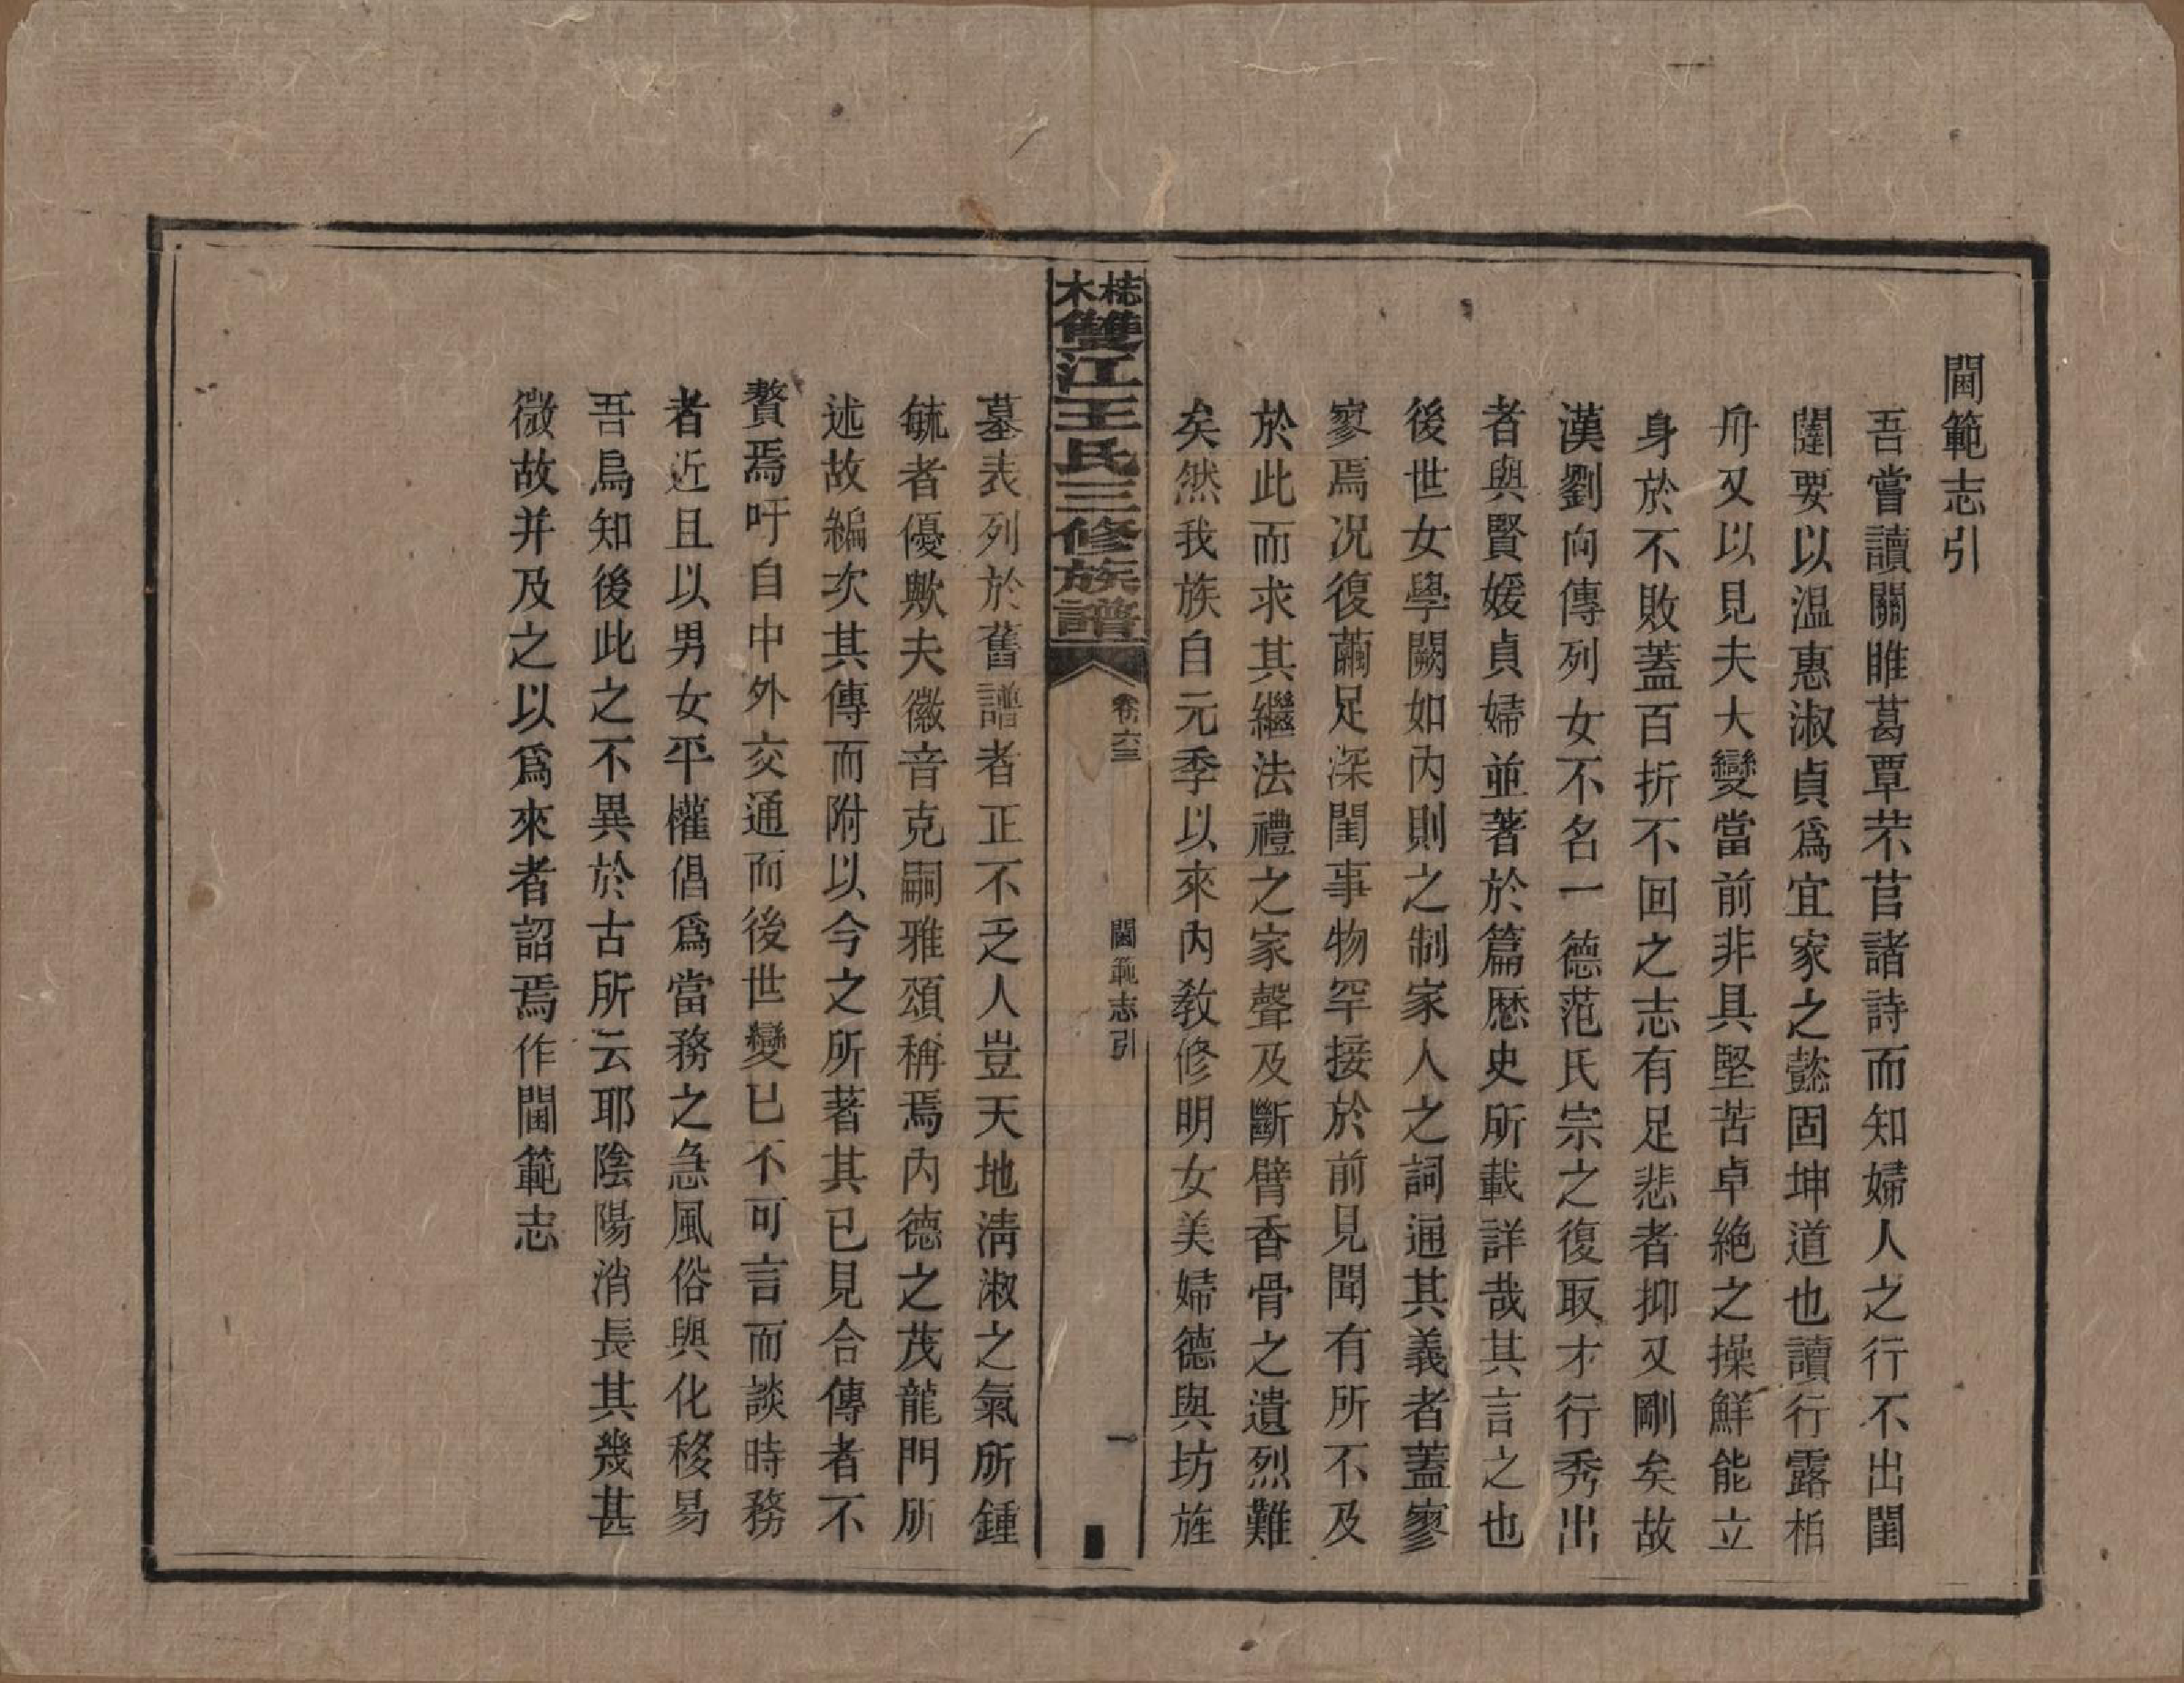 閫範志引
吾嘗讀關睢葛覃芣苢諸詩而知婦人之行不出閨
闥要以温惠淑貞爲宜家之懿固坤道也讀行露栢
舟又以見夫大變當前非具堅苦卓絶之操鮮能立
身於不敗蓋百折不回之志有足悲者抑又剛矣故
漢劉向傳列女不名一德范氏宗之復取才行秀出
者與賢媛貞婦並著於篇歷史所載詳哉其言之也
後世女學闕如內則之制家人之詞通其義者蓋寥
寥焉況復繭足深閨事物罕接於前見聞有所不及
於此而求其繼法禮之家聲及斷臂香骨之遺烈難
矣然我族自元季以來內敎修明女美婦德與坊旌
梽木雙江王氏三修族譜
卷六三
閫範志引
一
墓表列於舊譜者正不乏人豈天地淸淑之氣所鍾
毓者優歟夫徽音克嗣雅頌稱焉內德之茂龍門所
述故編次其傳而附以今之所著其已見合傳者不
贅焉吁自中外交通而後世變已不可言而談時務
者近且以男女平權倡爲當務之急風俗與化移易
吾烏知後此之不異於古所云耶陰陽消長其幾甚
微故并及之以爲來者詔焉作閫範志